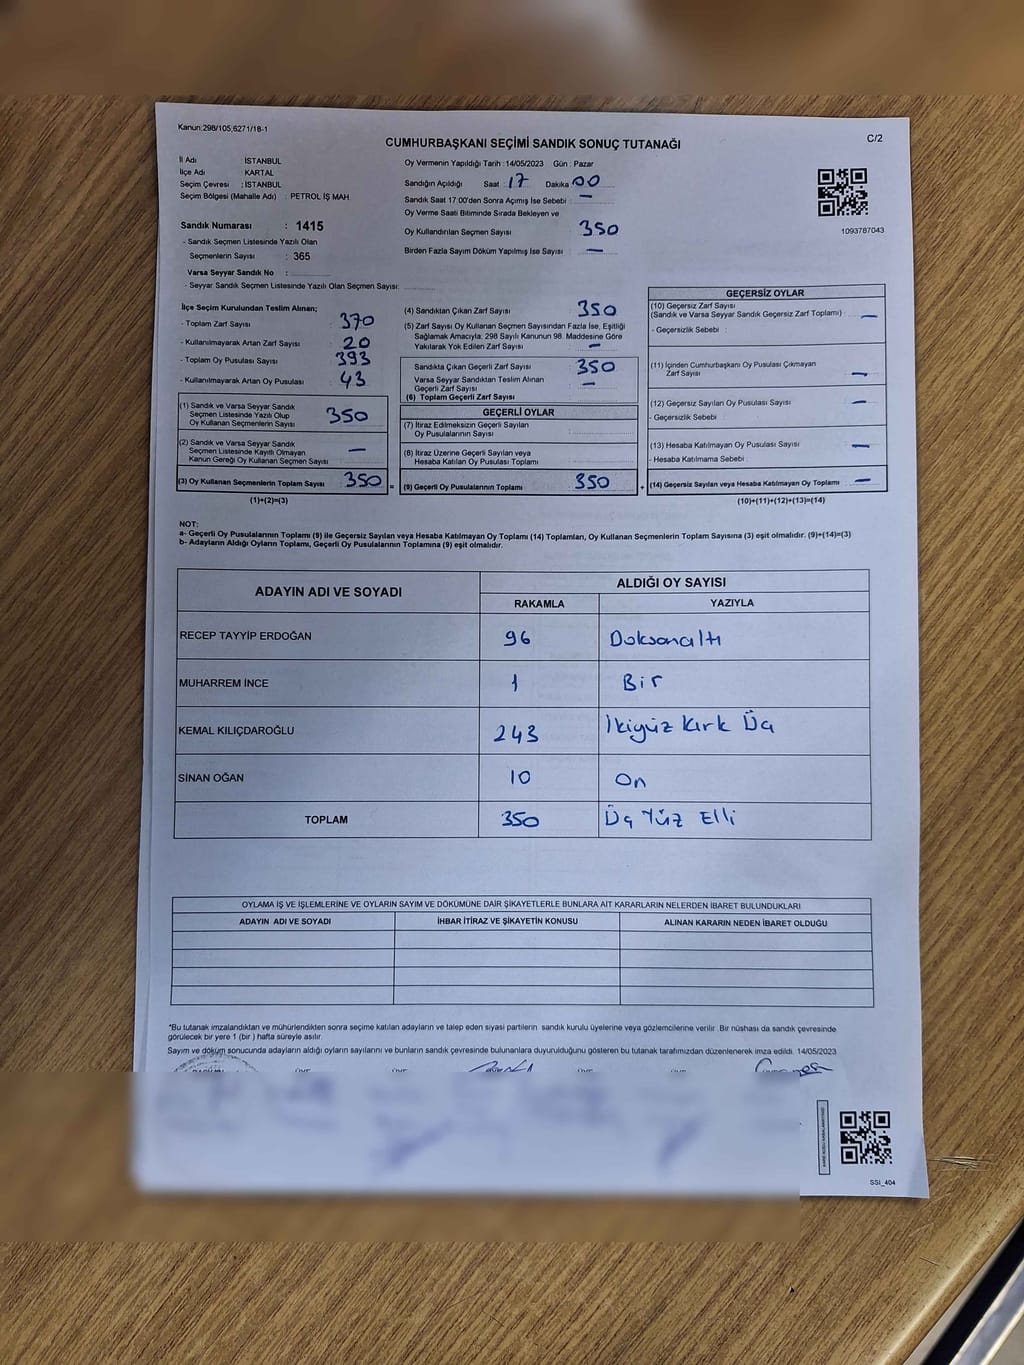 Kanun:298/105,6271/18-1
C/2
CUMHURBAŞKANI SEÇİMİ SANDIK SONUÇ TUTANAĞI
İl Adı : İSTANBUL
İlçe Adı : KARTAL
Seçim Çevresi : İSTANBUL
Seçim Bölgesi (Mahalle Adı) : PETROL İŞ MAH
Sandık Numarası : 1415
- Sandık Seçmen Listesinde Yazılı Olan
Seçmenlerin Sayısı : 365
Varsa Seyyar Sandık No :
- Seyyar Sandık Seçmen Listesinde Yazılı Olan Seçmen Sayısı:
Oy Vermenin Yapıldığı Tarih : 14/05/2023 Gün : Pazar
Sandığın Açıldığı Saat : 17 Dakika 00
Sandık Saat 17:00'den Sonra Açımış İse Sebebi : —
Oy Verme Saati Bitiminde Sırada Bekleyen ve
Oy Kullandırılan Seçmen Sayısı : 350
Birden Fazla Sayım Döküm Yapılmış İse Sayısı : —
1093787043
İlçe Seçim Kurulundan Teslim Alınan;
- Toplam Zarf Sayısı : 370
- Kullanılmayarak Artan Zarf Sayısı : 20
- Toplam Oy Pusulası Sayısı : 393
- Kullanılmayarak Artan Oy Pusulası : 43
(1) Sandık ve Varsa Seyyar Sandık
Seçmen Listesinde Yazılı Olup
Oy Kullanan Seçmenlerin Sayısı : 350
(2) Sandık ve Varsa Seyyar Sandık
Seçmen Listesinde Kayıtlı Olmayan
Kanun Gereği Oy Kullanan Seçmen Sayısı : —
(3) Oy Kullanan Seçmenlerin Toplam Sayısı : 350 =
(1)+(2)=(3)
(4) Sandıktan Çıkan Zarf Sayısı : 350
(5) Zarf Sayısı Oy Kullanan Seçmen Sayısından Fazla İse, Eşitliği
Sağlamak Amacıyla, 298 Sayılı Kanunun 98. Maddesine Göre
Yakılarak Yok Edilen Zarf Sayısı : —
Sandıkta Çıkan Geçerli Zarf Sayısı : 350
Varsa Seyyar Sandıktan Teslim Alınan
Geçerli Zarf Sayısı : —
(6) Toplam Geçerli Zarf Sayısı :
GEÇERLİ OYLAR
(7) İtiraz Edilmeksizin Geçerli Sayılan
Oy Pusulalarının Sayısı :
(8) İtiraz Üzerine Geçerli Sayılan veya
Hesaba Katılan Oy Pusulası Toplamı :
(9) Geçerli Oy Pusulalarının Toplamı : 350 +
GEÇERSİZ OYLAR
(10) Geçersiz Zarf Sayısı
(Sandık ve Varsa Seyyar Sandık Geçersiz Zarf Toplamı) : —
- Geçersizlik Sebebi :
(11) İçinden Cumhurbaşkanı Oy Pusulası Çıkmayan
Zarf Sayısı : —
(12) Geçersiz Sayılan Oy Pusulası Sayısı : —
- Geçersizlik Sebebi :
(13) Hesaba Katılmayan Oy Pusulası Sayısı : —
- Hesaba Katılmama Sebebi :
(14) Geçersiz Sayılan veya Hesaba Katılmayan Oy Toplamı : —
(10)+(11)+(12)+(13)=(14)
NOT:
a- Geçerli Oy Pusulalarının Toplamı (9) ile Geçersiz Sayılan veya Hesaba Katılmayan Oy Toplamı (14) Toplamları, Oy Kullanan Seçmenlerin Toplam Sayısına (3) eşit olmalıdır. (9)+(14)=(3)
b- Adayların Aldığı Oyların Toplamı, Geçerli Oy Pusulalarının Toplamına (9) eşit olmalıdır.
ADAYIN ADI VE SOYADI ALDIĞI OY SAYISI
RAKAMLA YAZIYLA
RECEP TAYYİP ERDOĞAN 96 Doksanaltı
MUHARREM İNCE 1 Bir
KEMAL KILIÇDAROĞLU 243 İkiyüz Kırk Üç
SİNAN OĞAN 10 On
TOPLAM 350 Üç Yüz Elli
OYLAMA İŞ VE İŞLEMLERİNE VE OYLARIN SAYIM VE DÖKÜMÜNE DAİR ŞİKAYETLERLE BUNLARA AİT KARARLARIN NELERDEN İBARET BULUNDUKLARI
ADAYIN ADI VE SOYADI İHBAR İTİRAZ VE ŞİKAYETİN KONUSU ALINAN KARARIN NEDEN İBARET OLDUĞU
*Bu tutanak imzalandıktan ve mühürlendikten sonra seçime katılan adayların ve talep eden siyasi partilerin sandık kurulu üyelerine veya gözlemcilerine verilir. Bir nüshası da sandık çevresinde
görülecek bir yere 1 (bir) hafta süreyle asılır.
Sayım ve döküm sonucunda adayların aldığı oyların sayılarını ve bunların sandık çevresinde bulunanlara duyurulduğunu gösteren bu tutanak tarafımızdan düzenlenerek imza edildi. 14/05/2023
SSI_404